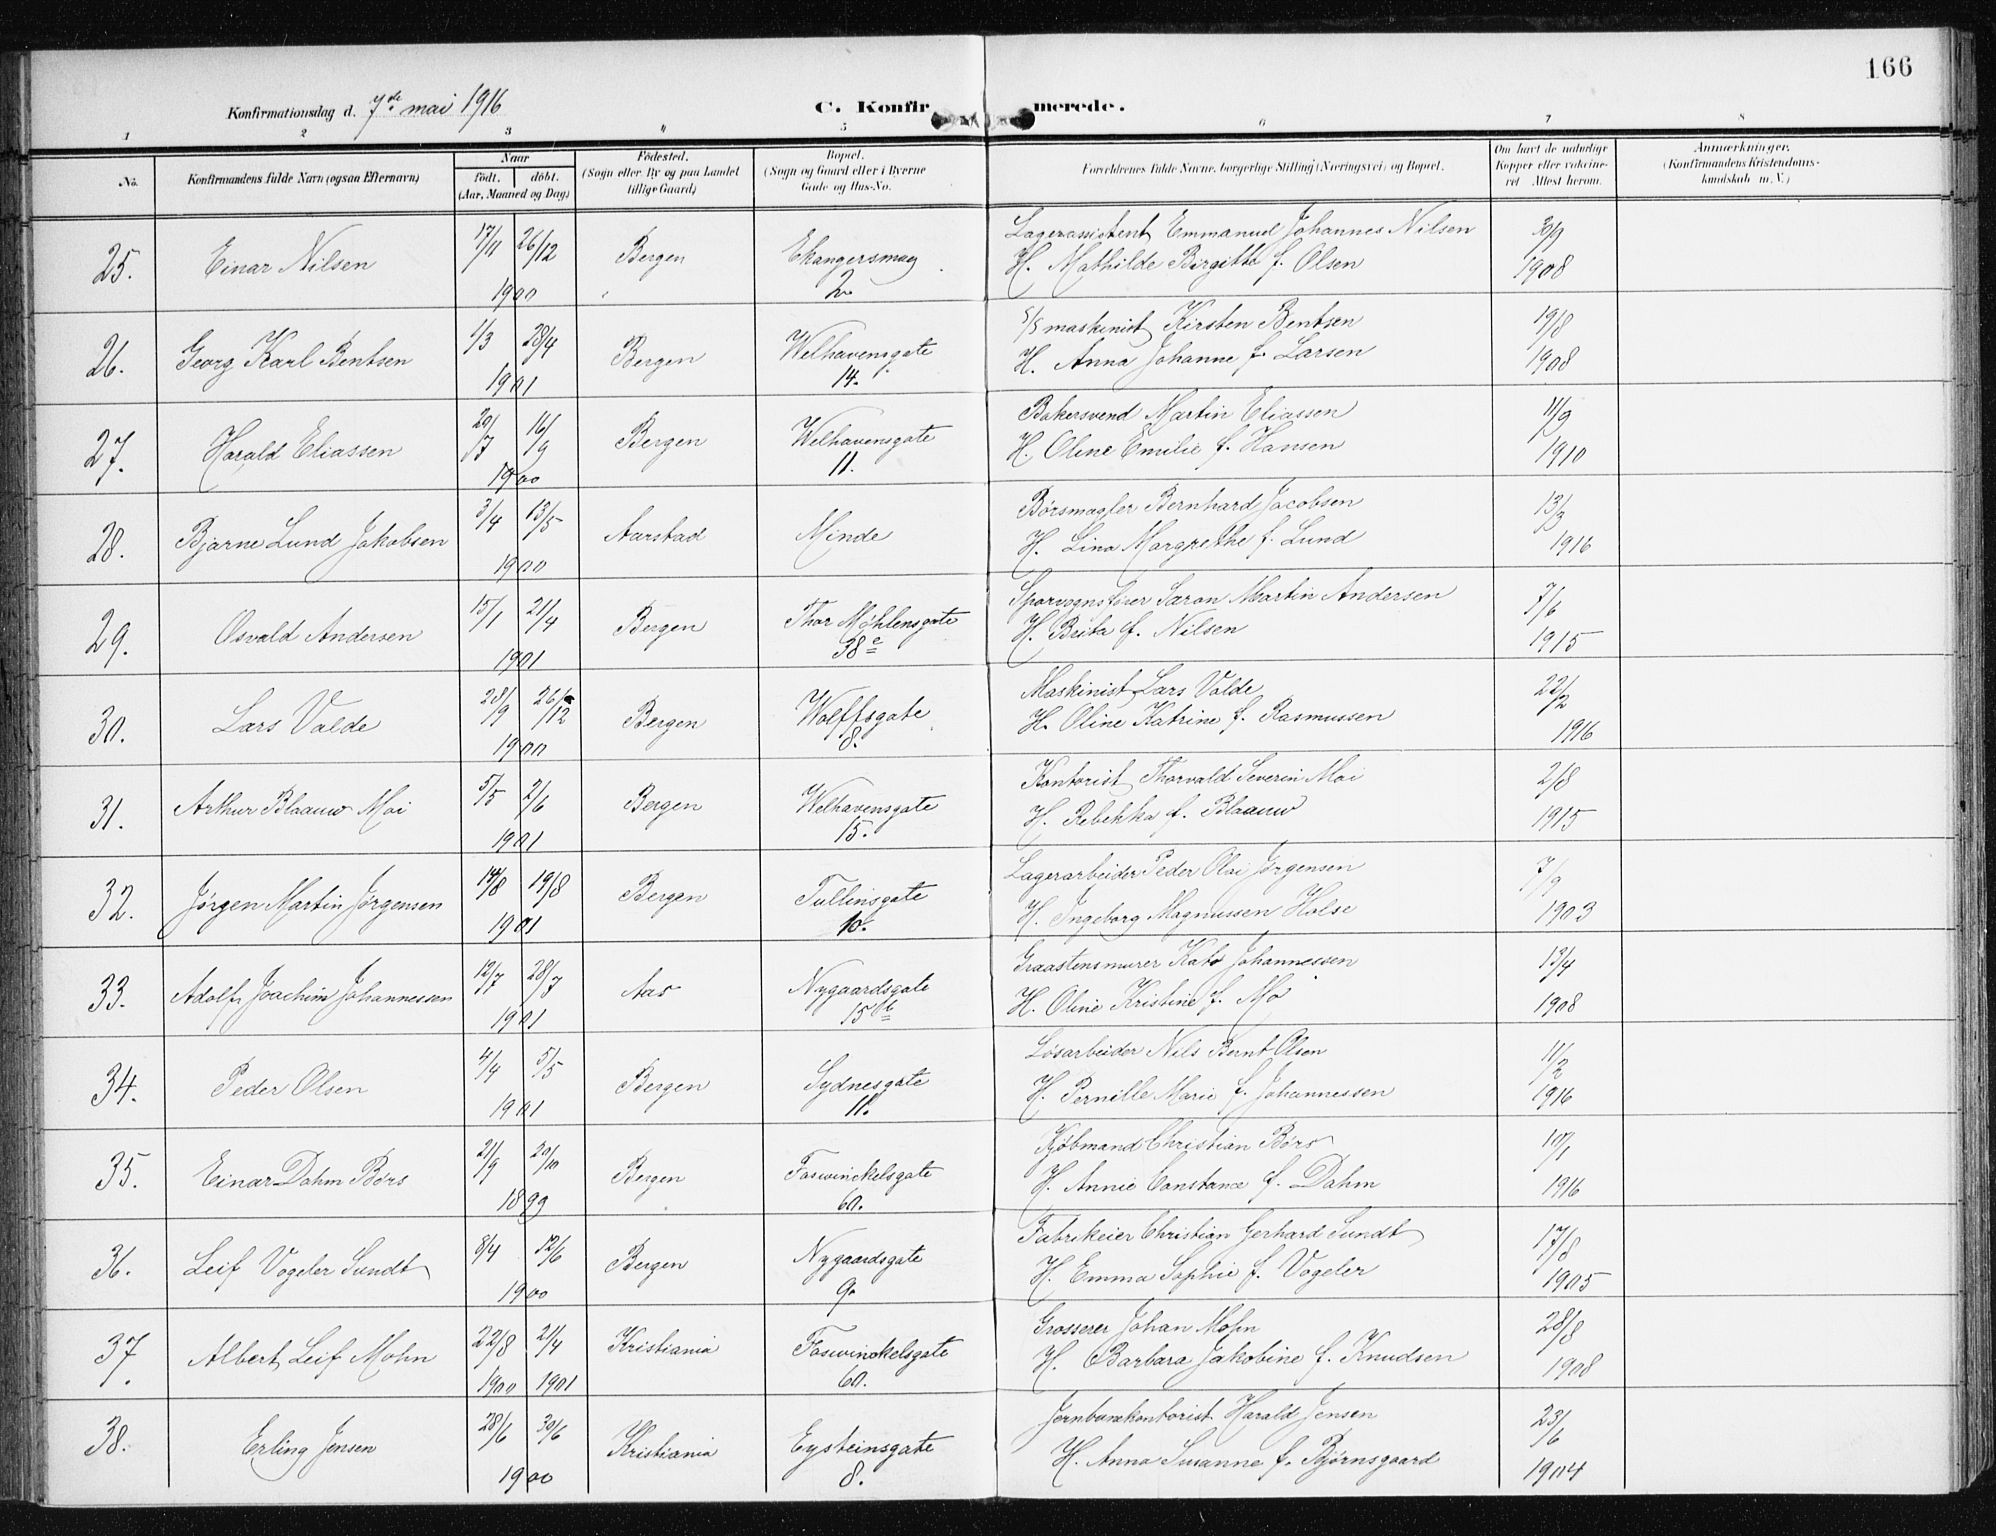 166
Konfirmationsdag d. 7de mai 1916
C. Konfirmerede.
1 2 3 4 5 6 7 8
No.
Konfirmandens fulde Navn (ogsaa Efternavn)
Naar
født. døbt.
(Aar, Maaned og Dag)
Fødested.
(Sogn eller By og paa Landet
tillige Gaard)
Bopæl.
(Sogn og Gaard eller i Byerne
Gade og Hus-No.
Forældrenes fulde Navne, borgerlige Stilling (Næringsvei) og Bopæl.
Om havt de naturlige
Kopper eller vakcine-
ret Attest herom.
Anmærkninger.
(Konfirmandens Kristendoms-
kundskab m. V.)
25. Einar Nilsen 17/11 26/12 1900 Bergen Ekangersmug 2
Lagerassistent Emmanuel Johannes Nilsen 30/9
H. Mathilde Birgitte f. Olsen 1908
26. Georg Karl Bentsen 1/3 28/4 1901 Bergen Welhavensgate 14.
S/S maskinist Kirsten Bentsen 19/8
H. Anna Johanne f. Larsen 1908
27. Harald Eliassen 20/7 16/9 1900 Bergen Welhavensgate 11.
Bakersvend Martin Eliassen 11/9
H. Oline Emilie f. Hansen 1910
28. Bjarne Lund Jakobsen 3/4 13/5 1900 Aarstad Minde
Børsmægler Bernhard Jacobsen 13/3
H. Lina Margrethe f. Lund 1916
29. Osvald Andersen 15/1 21/4 1901 Bergen Thor Møhlensgate 38 c
Sporvognsfører Saron Martin Andersen 7/6
H. Brita f. Nilsen 1915
30. Lars Valde 28/9 26/12 1900 Bergen Wolffsgate 8.
Maskinist Lars Valde 22/2
H. Oline Katrine f. Rasmussen 1916
31. Arthur Blaauw Moi 5/5 2/6 1901 Bergen Welhavensgate 15.
Kontorist Thorvald Severin Moi 2/8
H. Rebekka f. Blaauw 1915
32. Jørgen Martin Jørgensen 14/8 19/8 1901 Bergen Tullinsgate 10.
Lagerarbeider Peder Olai Jørgensen 7/9
H. Ingeborg Magnussen Halse 1903
33. Adolf Joachim Johannessen 12/7 28/7 1901 Aas Nygaardsgate 15 b
Graastensmurer Kato Johannessen 13/4
H. Oline Kristine f. Mo 1908
34. Peder Olsen 4/4 5/5 1901 Bergen Sydnesgate 11.
Løsarbeider Nils Bernt Olsen 11/2
H. Pernille Marie f. Johannessen 1916
35. Einar Dahm Børs 21/9 20/10 1899 Bergen Foswinckelsgate 60.
Kjøbmand Christian Børs 10/1
H. Annie Constance f. Dahm 1916
36. Leif Vogeler Sundt 8/4 12/6 1900 Bergen Nygaardsgate 9.
Fabrikeier Christian Gerhard Sundt 17/8
H. Emma Sophie f. Vogeler 1905
37. Albert Leif Mohn 22/8 1900 21/4 1901 Kristiania Foswinckelsgate 60.
Grosserer Johan Mohn 28/8
H. Barbara Jakobine f. Knudsen 1908
38. Erling Jensen 28/6 30/6 1900 Kristiania Eysteinsgate 8.
Jernbanekontorist Harald Jensen 23/6
H. Anna Susanne f. Bjørnsgaard 1904